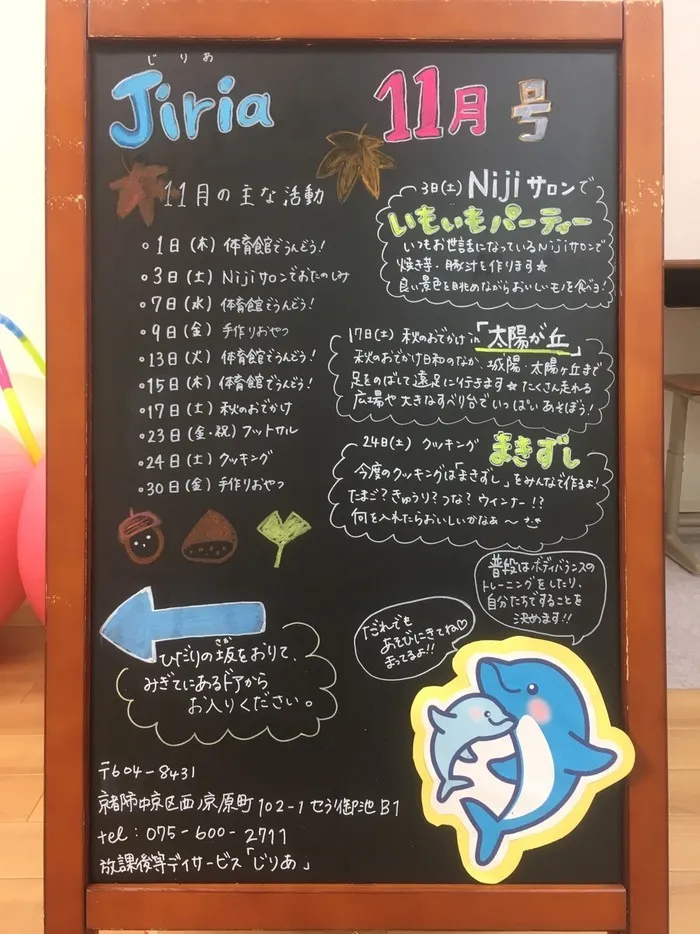 じりあ
Jiria
11月号
11月の主な活動
1日(木) 体育館でうんどう!
3日(土) Nijiサロンでおたのしみ
7日(水) 体育館でうんどう!
9日(金) 手作りおやつ
13日(火) 体育館でうんどう!
15日(木) 体育館でうんどう!
17日(土) 秋のおでかけ
23日(金・祝) フットサル
24日(土) クッキング
30日(金) 手作りおやつ
3日(土) Nijiサロンで
いもいもパーティー
いつもお世話になっているNijiサロンで
焼き芋・豚汁を作ります★
良い景色を眺めながらおいしいモノを食べヨ!
17日(土) 秋のおでかけ in「太陽が丘」
秋のおでかけ日和のなか、城陽・太陽ヶ丘まで
足をのばして遠足に行きます★たくさん走れる
広場や大きなすべり台でいっぱいあそぼう!
24日(土) クッキング まきずし
今度のクッキングは「まきずし」をみんなで作るよ!
たまご?きゅうり?つな?ウィンナー!?
何を入れたらおいしいかなぁ〜
普段はボディバランスの
トレーニングをしたり、
自分たちですることを
決めます!!
だれでも
あそびにきてね♡
まってるよ!!
ひだりの坂をおりて、
さか
みぎてにあるドアから
お入りください。
〒604-8431
京都市中京区西ノ京原町102-1 セラ御池B1
tel:075-600-2711
放課後等デイサービス「じりあ」